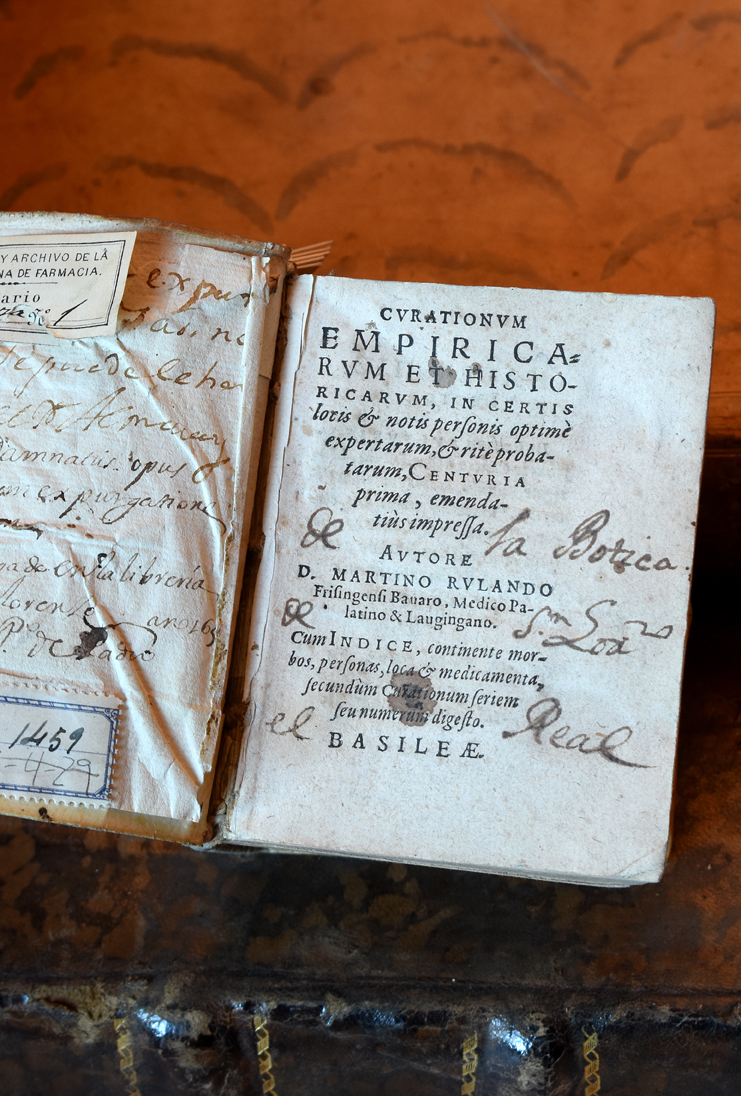 Y ARCHIVO DE LA
NA DE FARMACIA.
ario
1
expur
se puede leher
damnatus. opus
expurgatione
en la libreria
1459
CVRATIONVM
EMPIRICA=
RVM ET HISTO-
RICARVM, IN CERTIS
locis & notis perſonis optimè
expertarum, & ritè proba-
tarum, CENTVRIA
prima, emenda-
tiùs impreſſa.
de la Botica
AVTORE
D. MARTINO RVLANDO
Friſingenſi Bauaro, Medico Pa-
latino & Laugingano.
de S.ⁿ Lorᶻᵒ
Cum INDICE, continente mor-
bos, perſonas, loca & medicamenta,
ſecundùm Curationum ſeriem
ſeu numerum digeſto.
el Real
BASILEÆ.